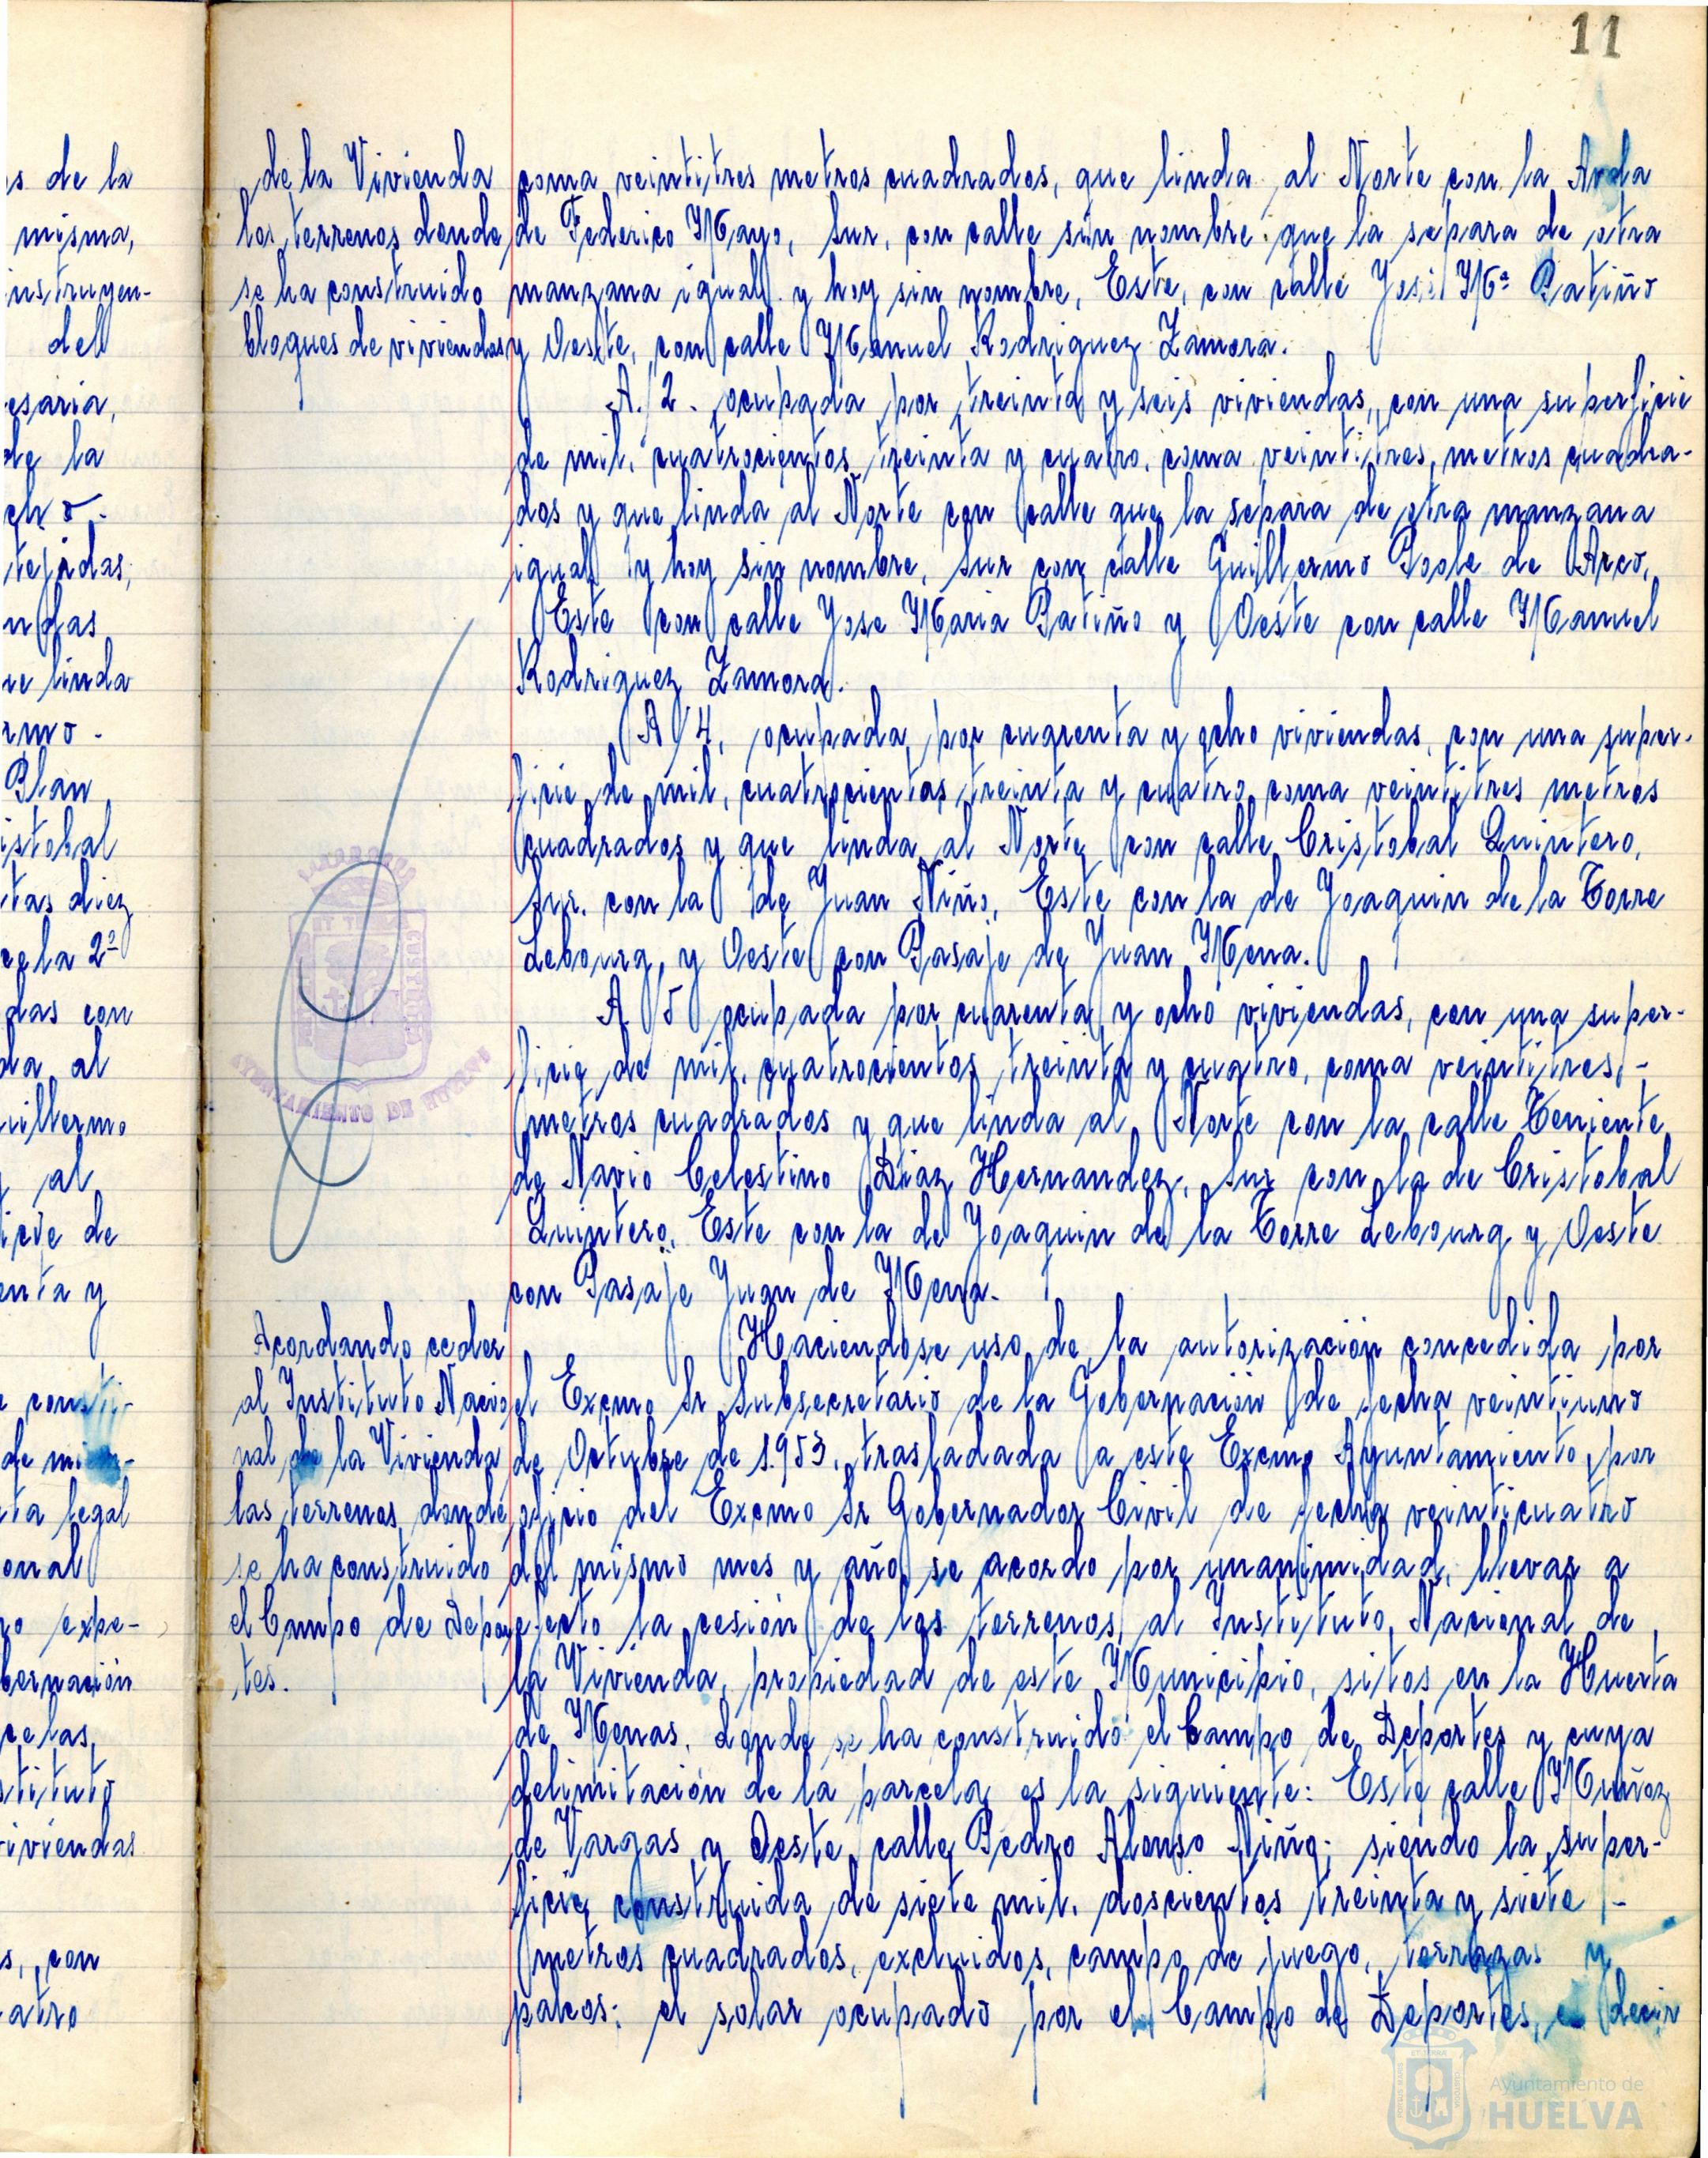 11
s de la
misma,
instruyen-
del
esaria,
de la
cho.
tejidas,
ne linda
rmo-
Plan
istobal
tas diez
cela 2ª
das con
da al
uillermo
al
icie de
enta y
consti-
de
ta legal
onal
expe-
bernación
celas,
stituto
viviendas
s, con
atro
de la Vivienda
los terrenos donde
se ha construido
bloques de viviendas
coma veintitres metros cuadrados, que linda al Norte con la Avda
de Federico Mayo, Sur, con calle sin nombre que la separa de otra
manzana igual y hoy sin nombre, Este, con calle José Mª Patiño
y Oeste, con calle Manuel Rodriguez Zamora.
A. 2. ocupada por treinta y seis viviendas, con una superficie
de mil, cuatrocientos treinta y cuatro, coma veintitres, metros cuadra-
dos y que linda al Norte con calle que la separa de otra manzana
igual y hoy sin nombre, Sur con calle Guillermo Poole de Arco,
Este con calle Jose Maria Patiño y Oeste con calle Manuel
Rodriguez Zamora.
A 4, ocupada por cuarenta y ocho viviendas, con una super-
ficie de mil, cuatrocientas treinta y cuatro coma veintitres metros
cuadrados y que linda al Norte con calle Cristobal Quintero,
Sur, con la de Juan Niño, Este con la de Joaquin de la Torre
Lebourg, y Oeste con Pasaje de Juan Mena.
A 5 ocupada por cuarenta y ocho viviendas, con una super-
ficie de mil, cuatrocientos treinta y cuatro, coma veintitres,-
metros cuadrados y que linda al Norte con la calle Teniente
de Navio Celestino Diaz Hernandez, Sur con la de Cristobal
Quintero, Este con la de Joaquin de la Torre Lebourg y Oeste
con Pasaje Juan de Mena.
AYUNTAMIENTO DE HUELVA
Acordando ceder
al Instituto Nacio
nal de la Vivienda
las terrenos donde
se ha construido
el Campo de Depor
tes.
Haciendose uso de la autorización concedida por
el Excmo Sr Subsecretario de la Gobernación de fecha veintiuno
de Octubre de 1.953, trasladada a este Excmo Ayuntamiento, por
oficio del Excmo Sr Gobernador Civil de fecha veinticuatro
del mismo mes y año se acordo por unanimidad, llevar a
efecto la cesión de los terrenos, al Instituto Nacional de
la Vivienda, propiedad de este Municipio, sitos en la Huerta
de Menas, donde se ha construido el Campo de Deportes y cuya
delimitación de la parcela es la siguiente: Este calle Muñoz
de Vargas y Oeste calle Pedro Alonso Niño; siendo la super-
ficie construida de siete mil, doscientos treinta y siete -
metros cuadrados, excluidos, campo de juego, terrazas y
palcos: el solar ocupado por el Campo de Deportes, es decir
Ayuntamiento de
HUELVA